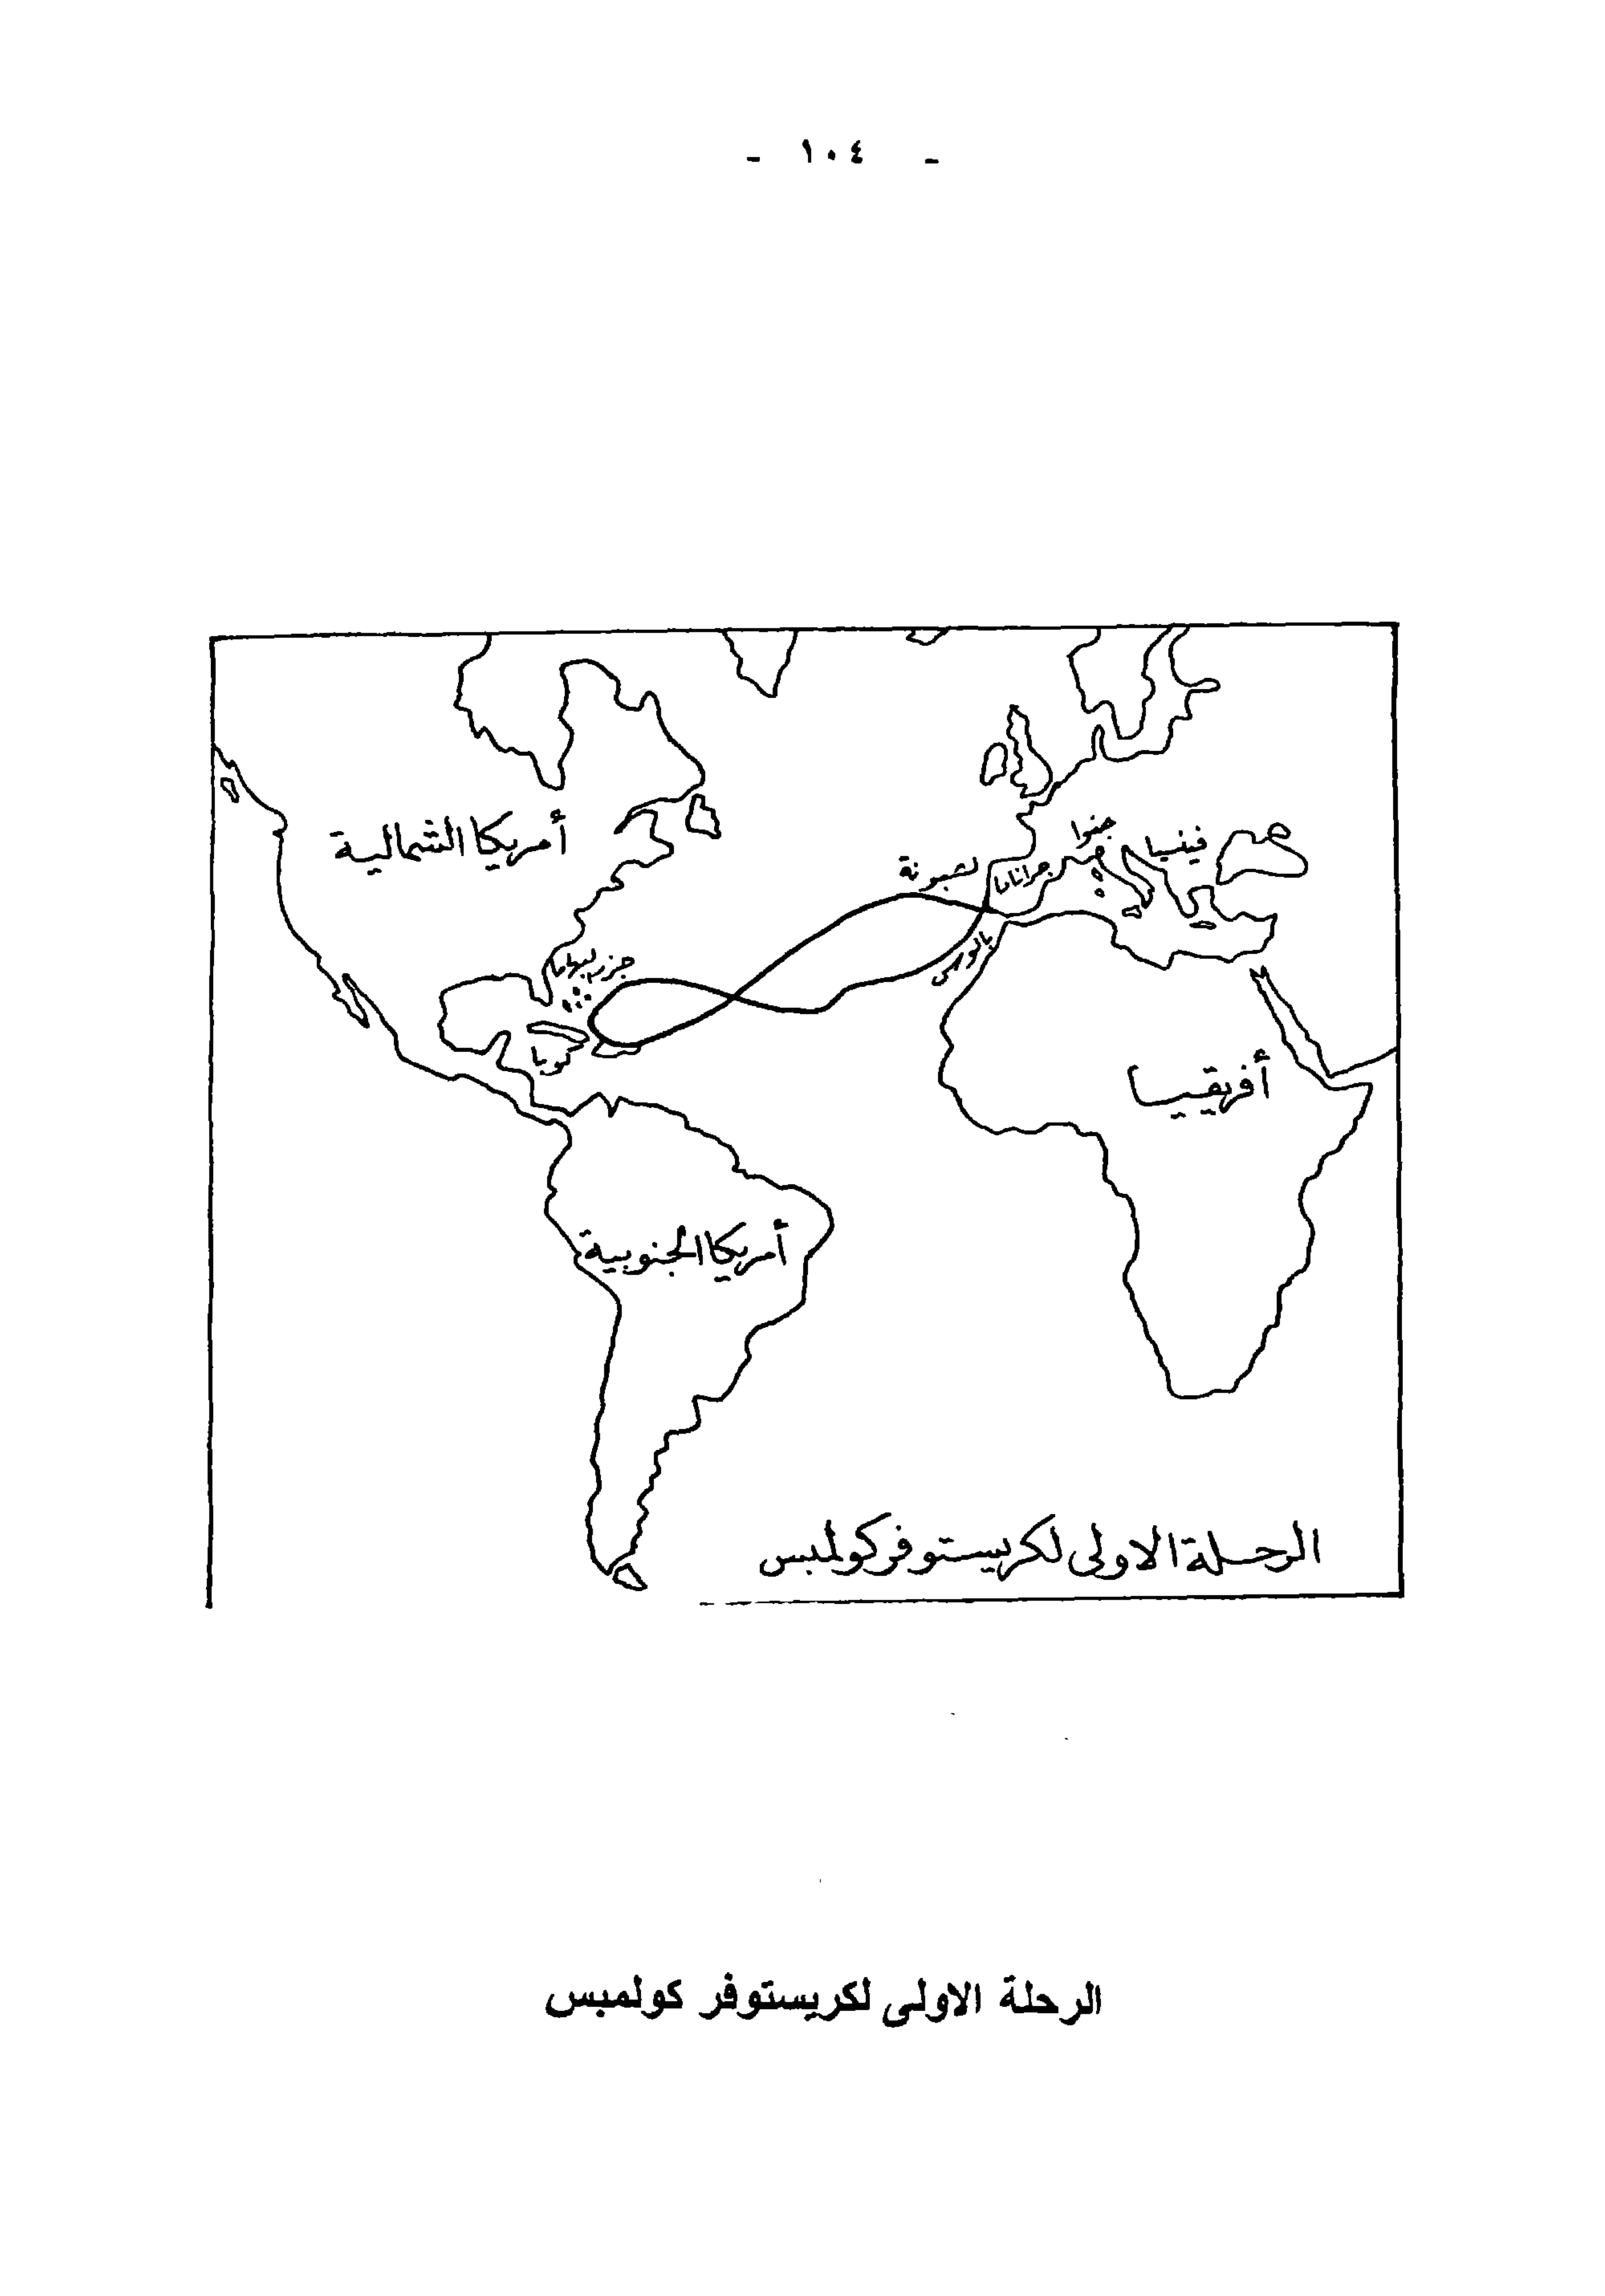 - ١٠٤ -
أمريكا الشمالية
جنوا
فينسيا
لشبونة
جرانادا
جزر بهاما
كوبا
أفريقيا
أمريكا الجنوبية
الرحلة الاولى لكريستوفر كولمبس
الرحلة الاولى لكريستوفر كولمبس